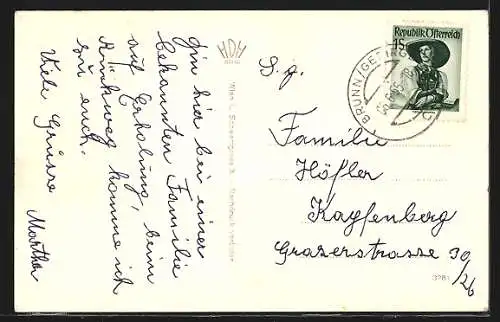 Bin hier bei einer
bekannten Familie
auf Erholung, beim
Rückweg komme ich
zu euch.
Viele Grüsse
Martha
HDH
Wien I,
D. g.
Familie
Höfler
Kapfenberg
Grazerstrasse 30/26
Republik Österreich
1S
BRUNN/GEBIRGE
3281